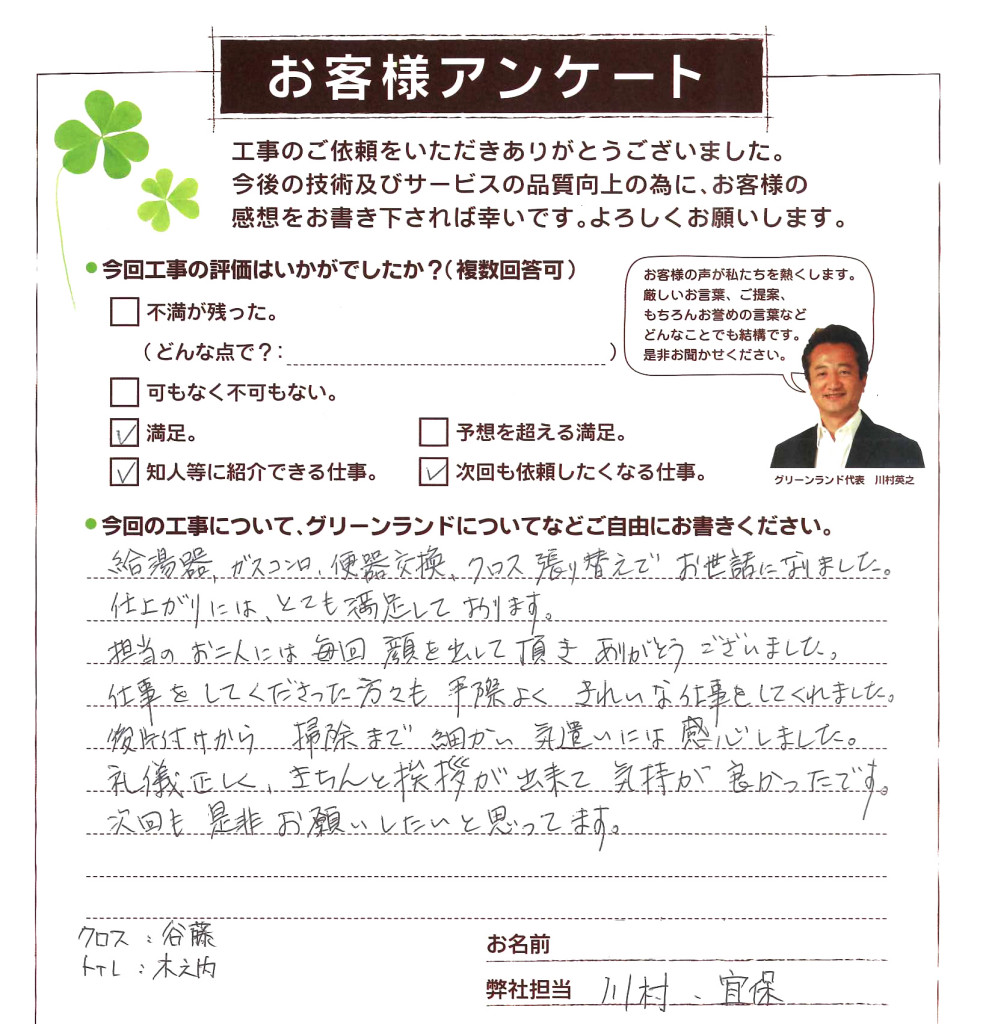 お客様アンケート
工事のご依頼をいただきありがとうございました。
今後の技術及びサービスの品質向上の為に、お客様の
感想をお書き下されば幸いです。よろしくお願いします。
●今回工事の評価はいかがでしたか？（複数回答可）
不満が残った。
（どんな点で？：　）
可もなく不可もない。
満足。
予想を超える満足。
知人等に紹介できる仕事。
次回も依頼したくなる仕事。
お客様の声が私たちを熱くします。
厳しいお言葉、ご提案、
もちろんお誉めの言葉など
どんなことでも結構です。
是非お聞かせください。
グリーンランド代表　川村英之
●今回の工事について、グリーンランドについてなどご自由にお書きください。
給湯器、ガスコンロ、便器交換、クロス張り替えで お世話になりました。
仕上がりには、とても満足しております。
担当のお二人には毎回 顔を出して頂き ありがとうございました。
仕事をしてくださった方々も 手際よく きれいな仕事をしてくれました。
後片付けから 掃除まで 細かい 気遣いには感心しました。
礼儀正しく、きちんと挨拶が出来て 気持が 良かったです。
次回も是非お願いしたいと思ってます。
クロス：谷藤
トイレ：木之内
お名前
弊社担当 川村、宜保